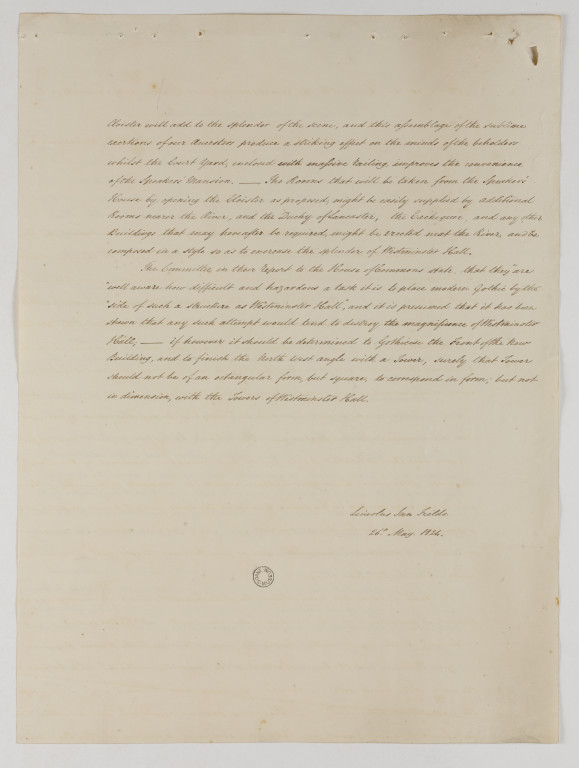 Cloister will add to the splendor of the scene, and this assemblage of the sublime
exertions of our Ancestors produce a striking effect on the minds of the beholders
whilst the Court Yard, inclosed with massive Railing, improves the convenience
of the Speakers Mansion. — The Rooms that will be taken from the Speaker's
House by opening the Cloister as proposed, might be easily supplied by additional
Rooms nearer the River, and the Duchy of Lancaster, the Exchequer, and any other
Buildings that may hereafter be required, might be erected next the River, and be
composed in a style so as to increase the splendor of Westminster Hall.
The Committee in their Report to the House of Commons state, that they "are
"well aware how difficult and hazardous a task it is to place modern Gothic by the
"side of such a structure as Westminster Hall", and it is presumed that it has been
shewn that any such attempt would tend to destroy the magnificence of Westminster
Hall, — if however it should be determined to Gothicise the Front of the New
Building, and to finish the North West angle with a Tower, surely that Tower
should not be of an octangular form, but square, to correspond in form, but not
in dimension, with the Towers of Westminster Hall.
Lincolns Inn Fields
26 May 1824.